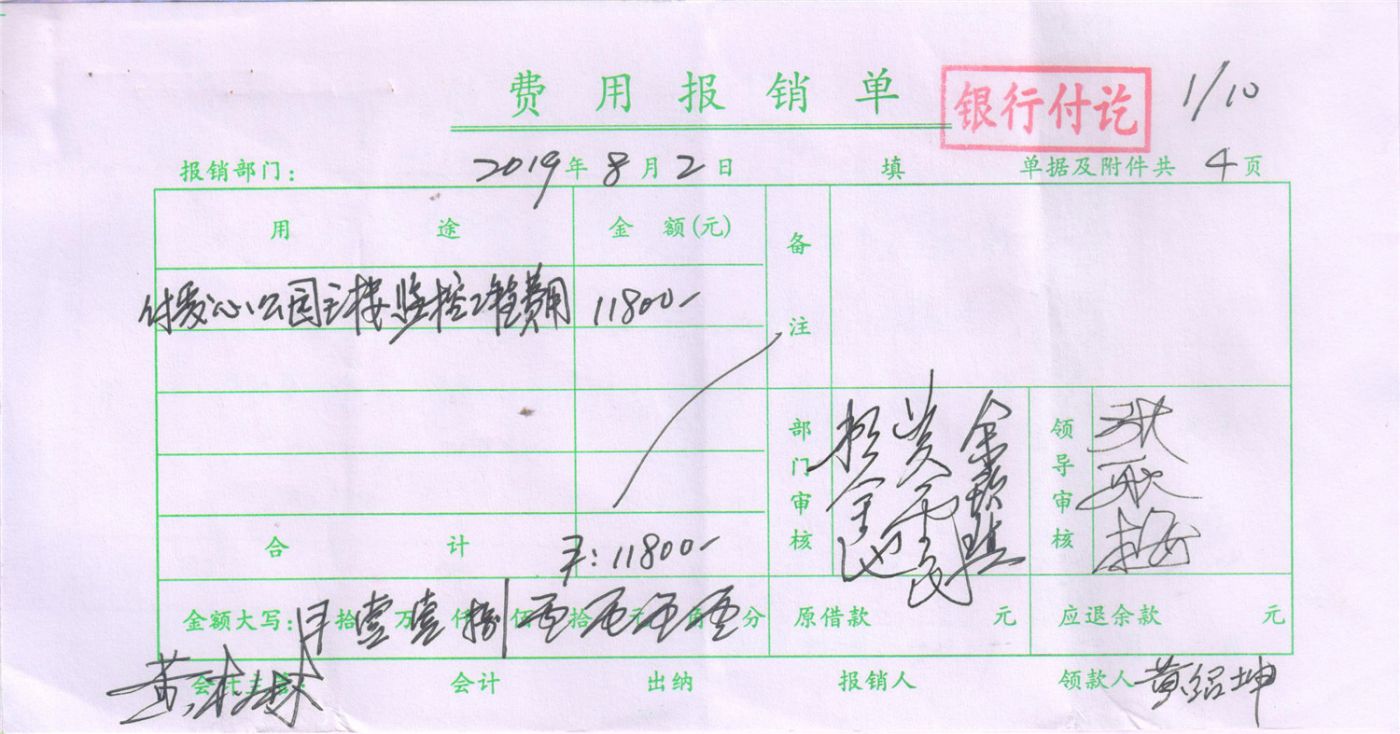 费用报销单 银行付讫 1/10
报销部门: 2019年8月2日 填 单据及附件共4页
用途 金额(元) 备注
付爱心公园主楼监控工程费用 11800-
部门审核 领导审核
合计 11800-
金额大写: 拾壹万壹仟捌佰 拾 元 角 分 原借款 元 应退余款 元
会计主管 会计 出纳 报销人 领款人 黄绍坤